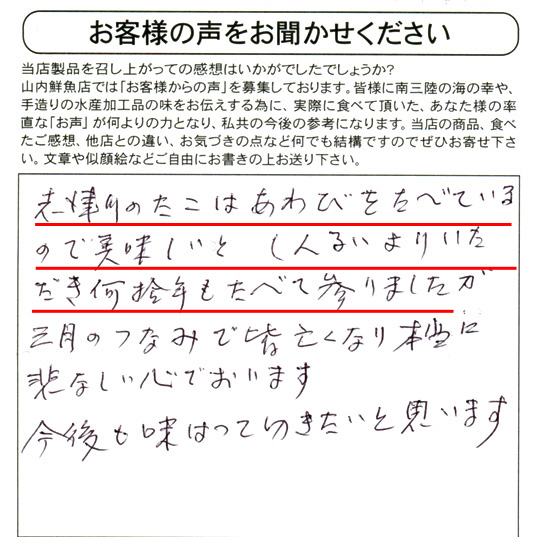 お客様の声をお聞かせください
当店製品を召し上がっての感想はいかがでしたでしょうか?
山内鮮魚店では「お客様からの声」を募集しております。皆様に南三陸の海の幸や、
手造りの水産加工品の味をお伝えする為に、実際に食べて頂いた、あなた様の率
直な「お声」が何よりの力となり、私共の今後の参考になります。当店の商品、食べ
たご感想、他店との違い、お気づきの点など何でも結構ですのでぜひお寄せ下さ
い。文章や似顔絵などご自由にお書きの上お送り下さい。
志津川のたこはあわびをたべている
ので美味しいと しんるいよりいた
だき何拾年もたべて参りましたが
三月のつなみで皆亡くなり本当に
悲なしい心でおります
今後も味はって切きたいと思います